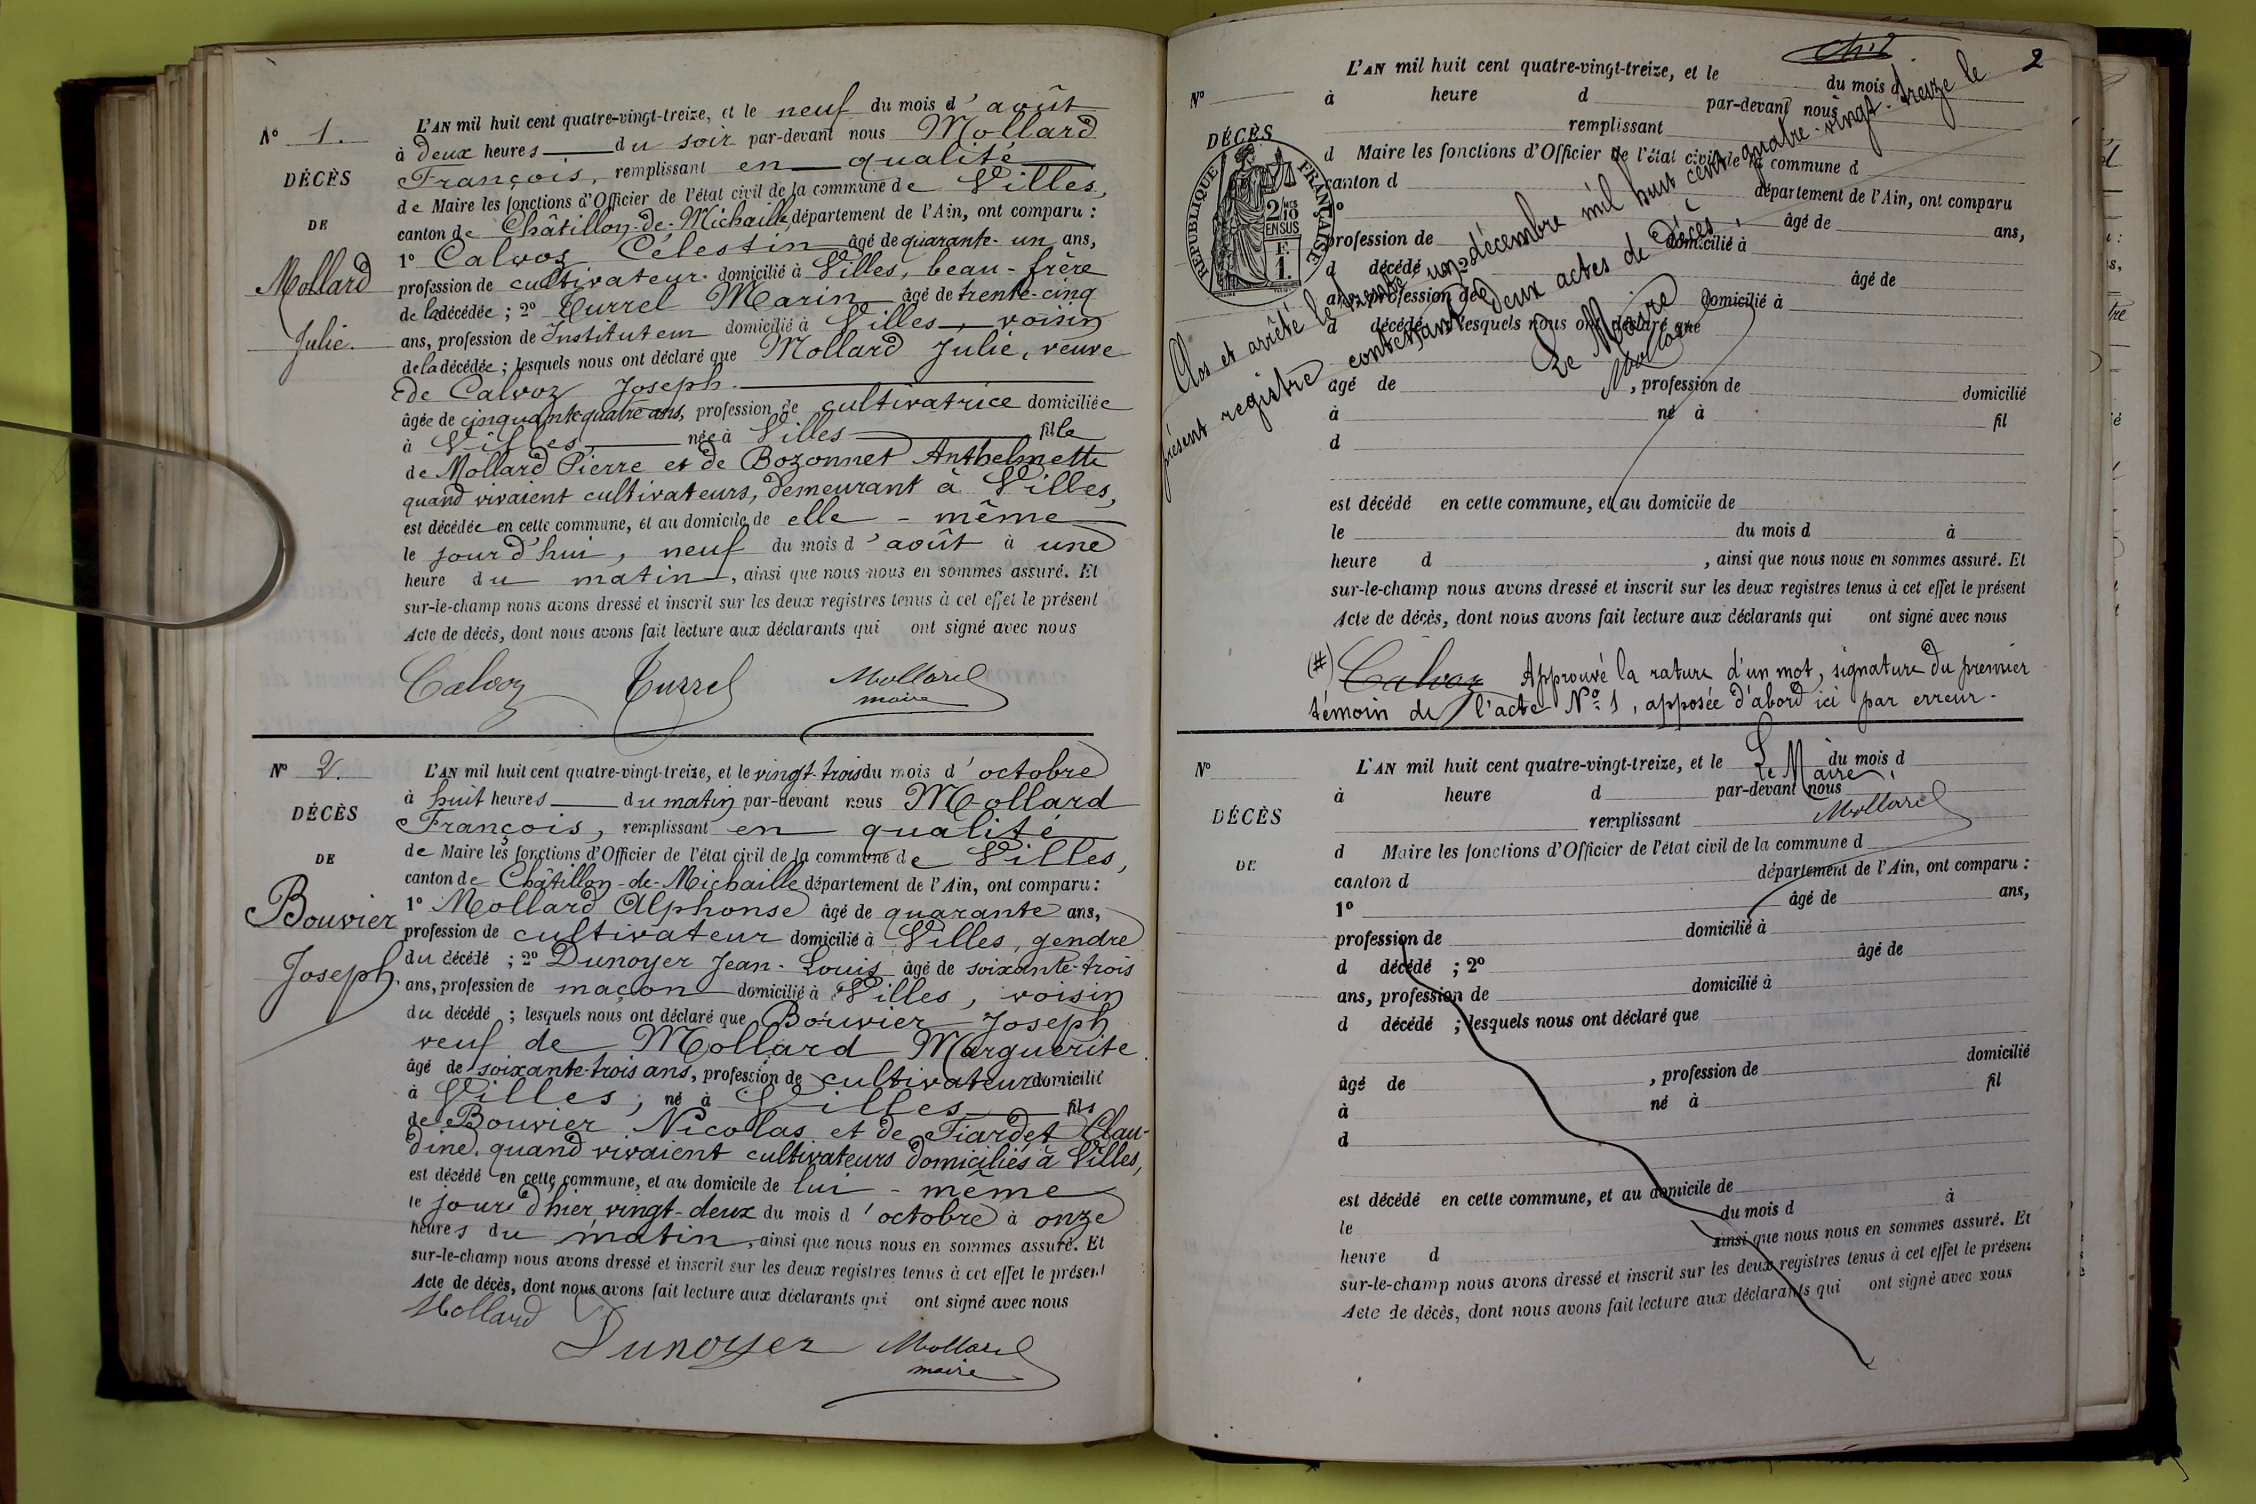 N° 1.
DÉCÈS
DE
Mollard
Julie.
L'AN mil huit cent quatre-vingt-treize, et le neuf du mois d'août
à deux heures du soir par-devant nous Mollard
François, remplissant en qualité
de Maire les fonctions d'Officier de l'état civil de la commune de Villes,
canton de Châtillon-de-Michaille, département de l'Ain, ont comparu :
1° Calvoz Célestin âgé de quarante-un ans,
profession de cultivateur domicilié à Villes, beau-frère
de la décédée ; 2° Turrel Marin âgé de trente-cinq
ans, profession de Instituteur domicilié à Villes, voisin
de la décédée ; lesquels nous ont déclaré que Mollard Julie, veuve
de Calvoz Joseph.
âgée de cinquante quatre ans, profession de cultivatrice domiciliée
à Villes née à Villes fille
de Mollard Pierre et de Bozonnet Anthelmette
quand vivaient cultivateurs, demeurant à Villes,
est décédée en cette commune, et au domicile de elle-même
le jour d'hui, neuf du mois d'août à une
heure du matin, ainsi que nous nous en sommes assuré. Et
sur-le-champ nous avons dressé et inscrit sur les deux registres tenus à cet effet le présent
Acte de décès, dont nous avons fait lecture aux déclarants qui ont signé avec nous
Calvoz Turrel Mollard
maire
N° 2.
DÉCÈS
DE
Bouvier
Joseph.
L'AN mil huit cent quatre-vingt-treize, et le vingt-trois du mois d'octobre
à huit heures du matin par-devant nous Mollard
François, remplissant en qualité
de Maire les fonctions d'Officier de l'état civil de la commune de Villes,
canton de Châtillon-de-Michaille département de l'Ain, ont comparu :
1° Mollard Alphonse âgé de quarante ans,
profession de cultivateur domicilié à Villes, gendre
du décédé ; 2° Dunoyer Jean-Louis âgé de soixante-trois
ans, profession de maçon domicilié à Villes, voisin
du décédé ; lesquels nous ont déclaré que Bouvier Joseph
veuf de Mollard Marguerite
âgé de soixante-trois ans, profession de cultivateur domicilié
à Villes, né à Villes fils
de Bouvier Nicolas et de Fiardet Clau-
dine, quand vivaient cultivateurs domiciliés à Villes,
est décédé en cette commune, et au domicile de lui-même
le jour d'hier vingt-deux du mois d'octobre à onze
heures du matin, ainsi que nous nous en sommes assuré. Et
sur-le-champ nous avons dressé et inscrit sur les deux registres tenus à cet effet le présent
Acte de décès, dont nous avons fait lecture aux déclarants qui ont signé avec nous
Mollard
Dunoyer Mollard
maire
2
N°
DÉCÈS
RÉPUBLIQUE FRANÇAISE
2/10 EN SUS
F.
1.
L'AN mil huit cent quatre-vingt-treize, et le du mois d
à heure d par-devant nous
remplissant
d Maire les fonctions d'Officier de l'état civil de la commune d
canton d département de l'Ain, ont comparu
1° âgé de ans,
profession de domicilié à
d décédé ; 2° âgé de
ans, profession de domicilié à
d décédé ; lesquels nous ont déclaré que
âgé de , profession de domicilié
à né à fil
d
est décédé en cette commune, et au domicile de
le du mois d à
heure d , ainsi que nous nous en sommes assuré. Et
sur-le-champ nous avons dressé et inscrit sur les deux registres tenus à cet effet le présent
Acte de décès, dont nous avons fait lecture aux déclarants qui ont signé avec nous
Clos et arrêté le trente un décembre mil huit cent quatre-vingt-treize le
présent registre contenant deux actes de Décès.
Le Maire
Mollard
(#) Calvoz Approuvé la rature d'un mot, signature du premier
témoin de l'acte N° 1, apposée d'abord ici par erreur.
Le Maire,
Mollard
N°
DÉCÈS
DE
L'AN mil huit cent quatre-vingt-treize, et le du mois d
à heure d par-devant nous
remplissant
d Maire les fonctions d'Officier de l'état civil de la commune d
canton d département de l'Ain, ont comparu :
1° âgé de ans,
profession de domicilié à
d décédé ; 2° âgé de
ans, profession de domicilié à
d décédé ; lesquels nous ont déclaré que
âgé de , profession de domicilié
à né à fil
d
est décédé en cette commune, et au domicile de
le du mois d à
heure d ainsi que nous nous en sommes assuré. Et
sur-le-champ nous avons dressé et inscrit sur les deux registres tenus à cet effet le présent
Acte de décès, dont nous avons fait lecture aux déclarants qui ont signé avec nous